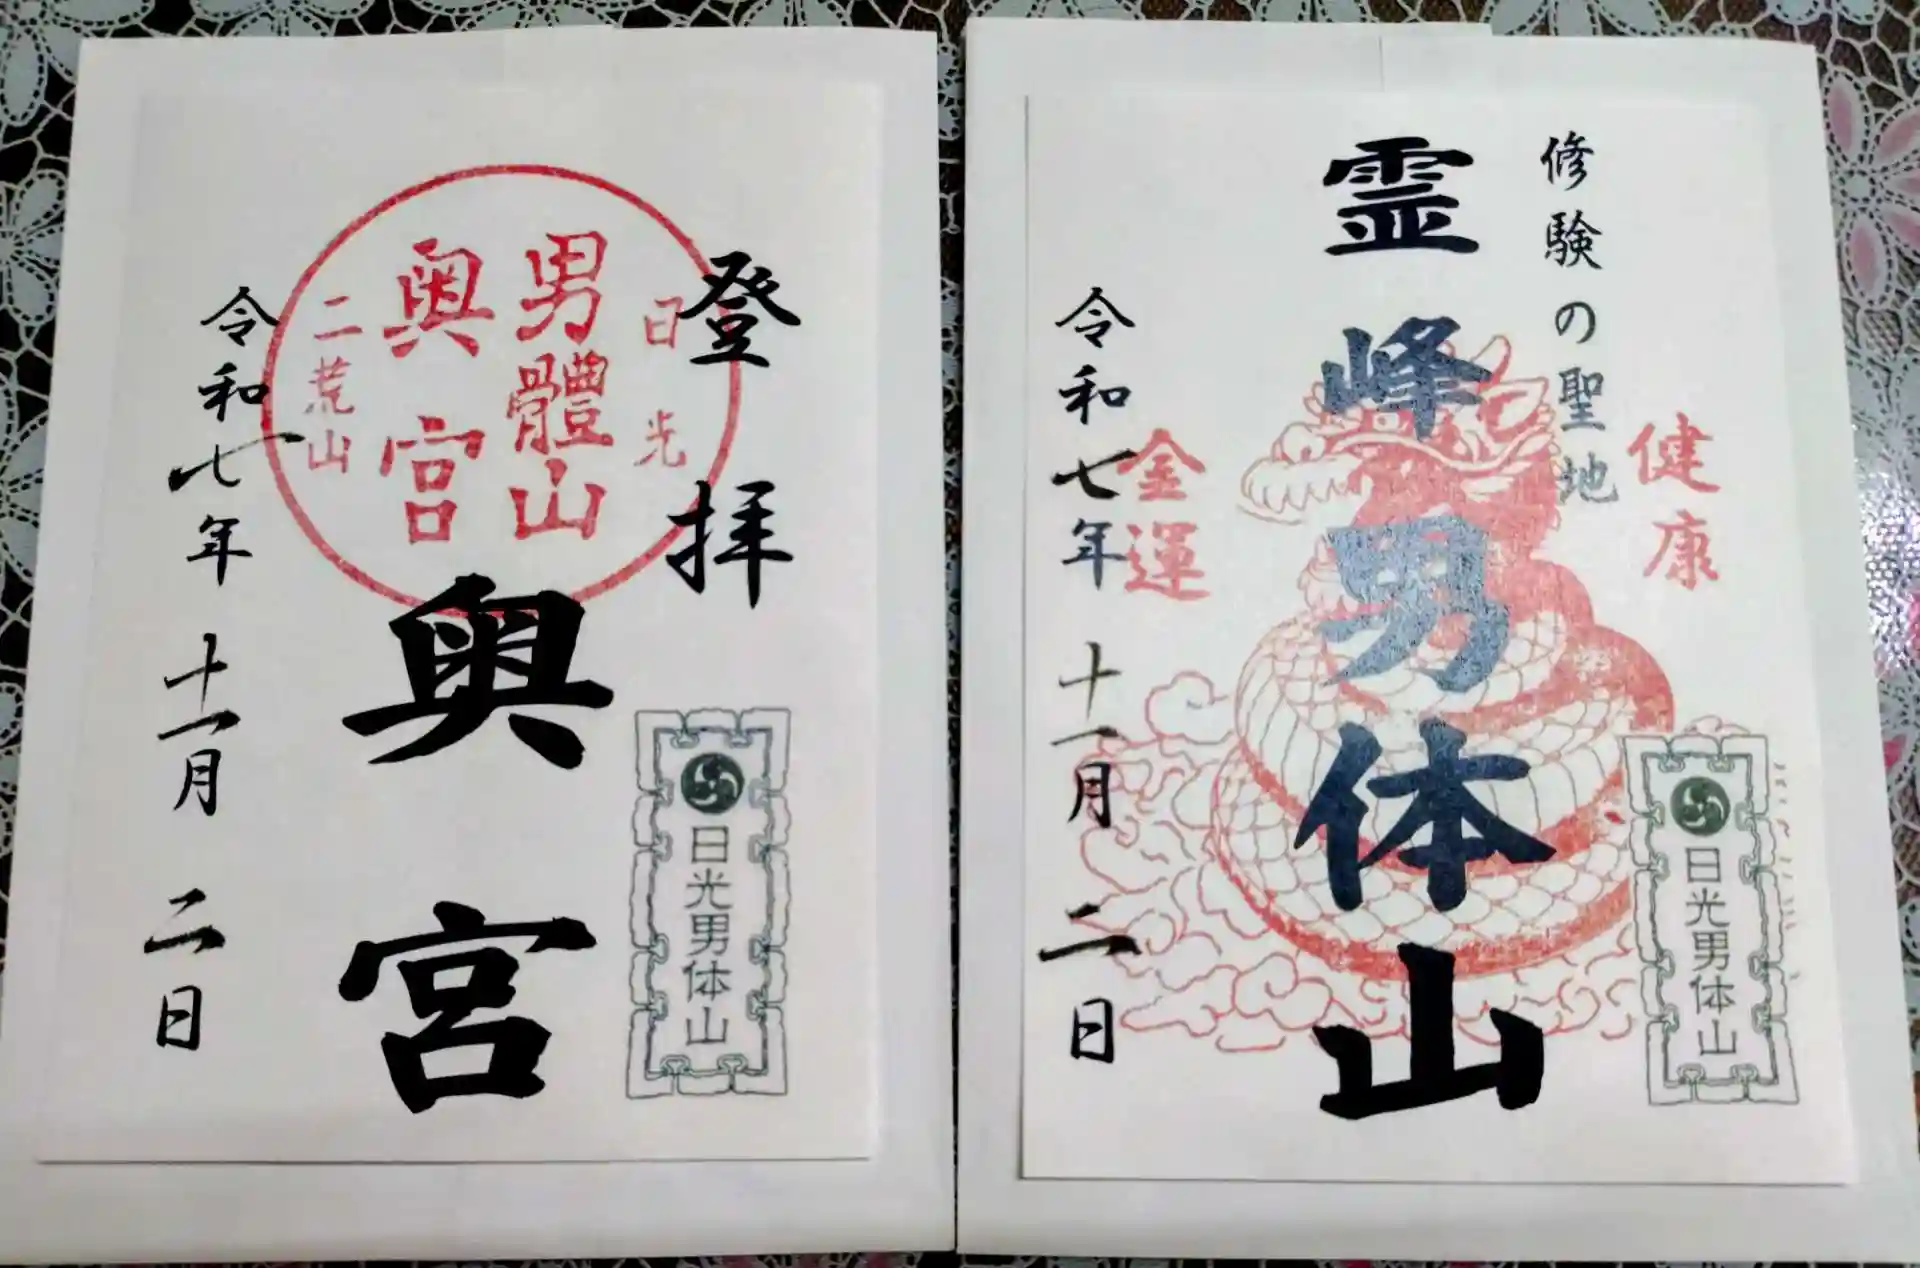 登拝
日光
男體山
奥宮
二荒山
奥宮
令和七年十一月二日
日光男体山
修験の聖地
霊峰男体山
健康
金運
令和七年十一月二日
日光男体山